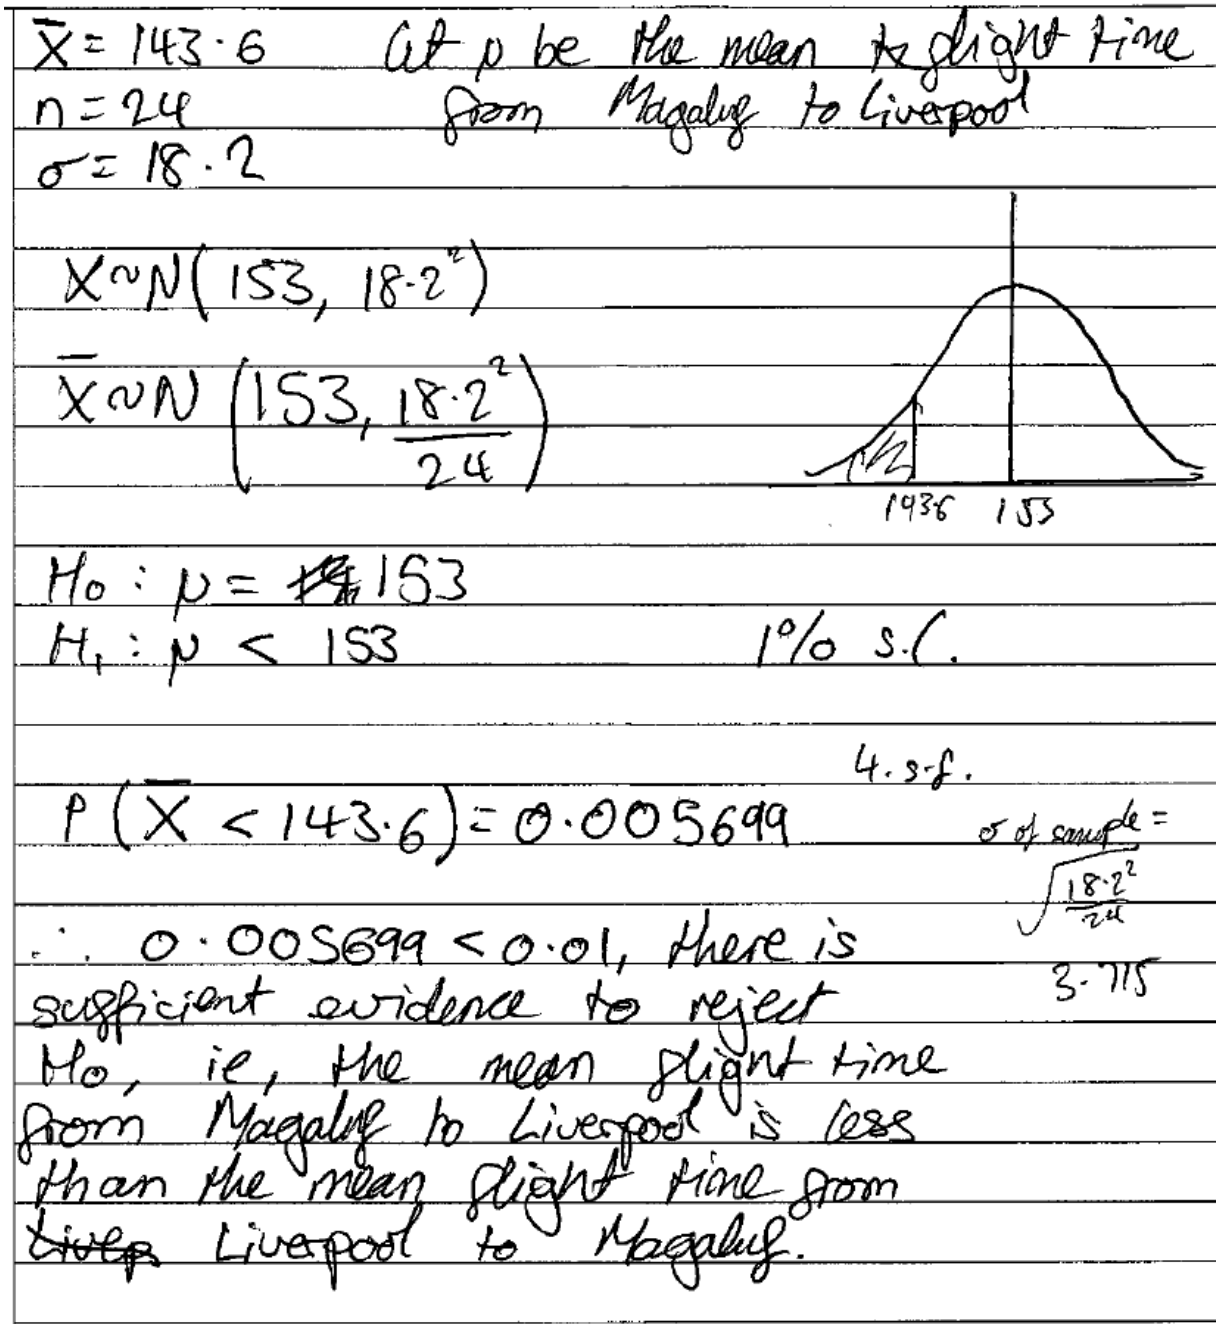 X̄ = 143.6 Let μ be the mean flight time
n = 24 from Magaluf to Liverpool
σ = 18.2
X ~ N(153, 18.2²)
X̄ ~ N(153, 18.2²/24)
143.6 153
H₀ : μ = 153
H₁ : μ < 153 1% s.l.
4.s.f.
P(X̄ < 143.6) = 0.005699
σ of sample =
√(18.2²/24)
∴ 0.005699 < 0.01, there is
3.715
sufficient evidence to reject
H₀, ie, the mean flight time
from Magaluf to Liverpool is less
than the mean flight time from
Liverpool to Magaluf.